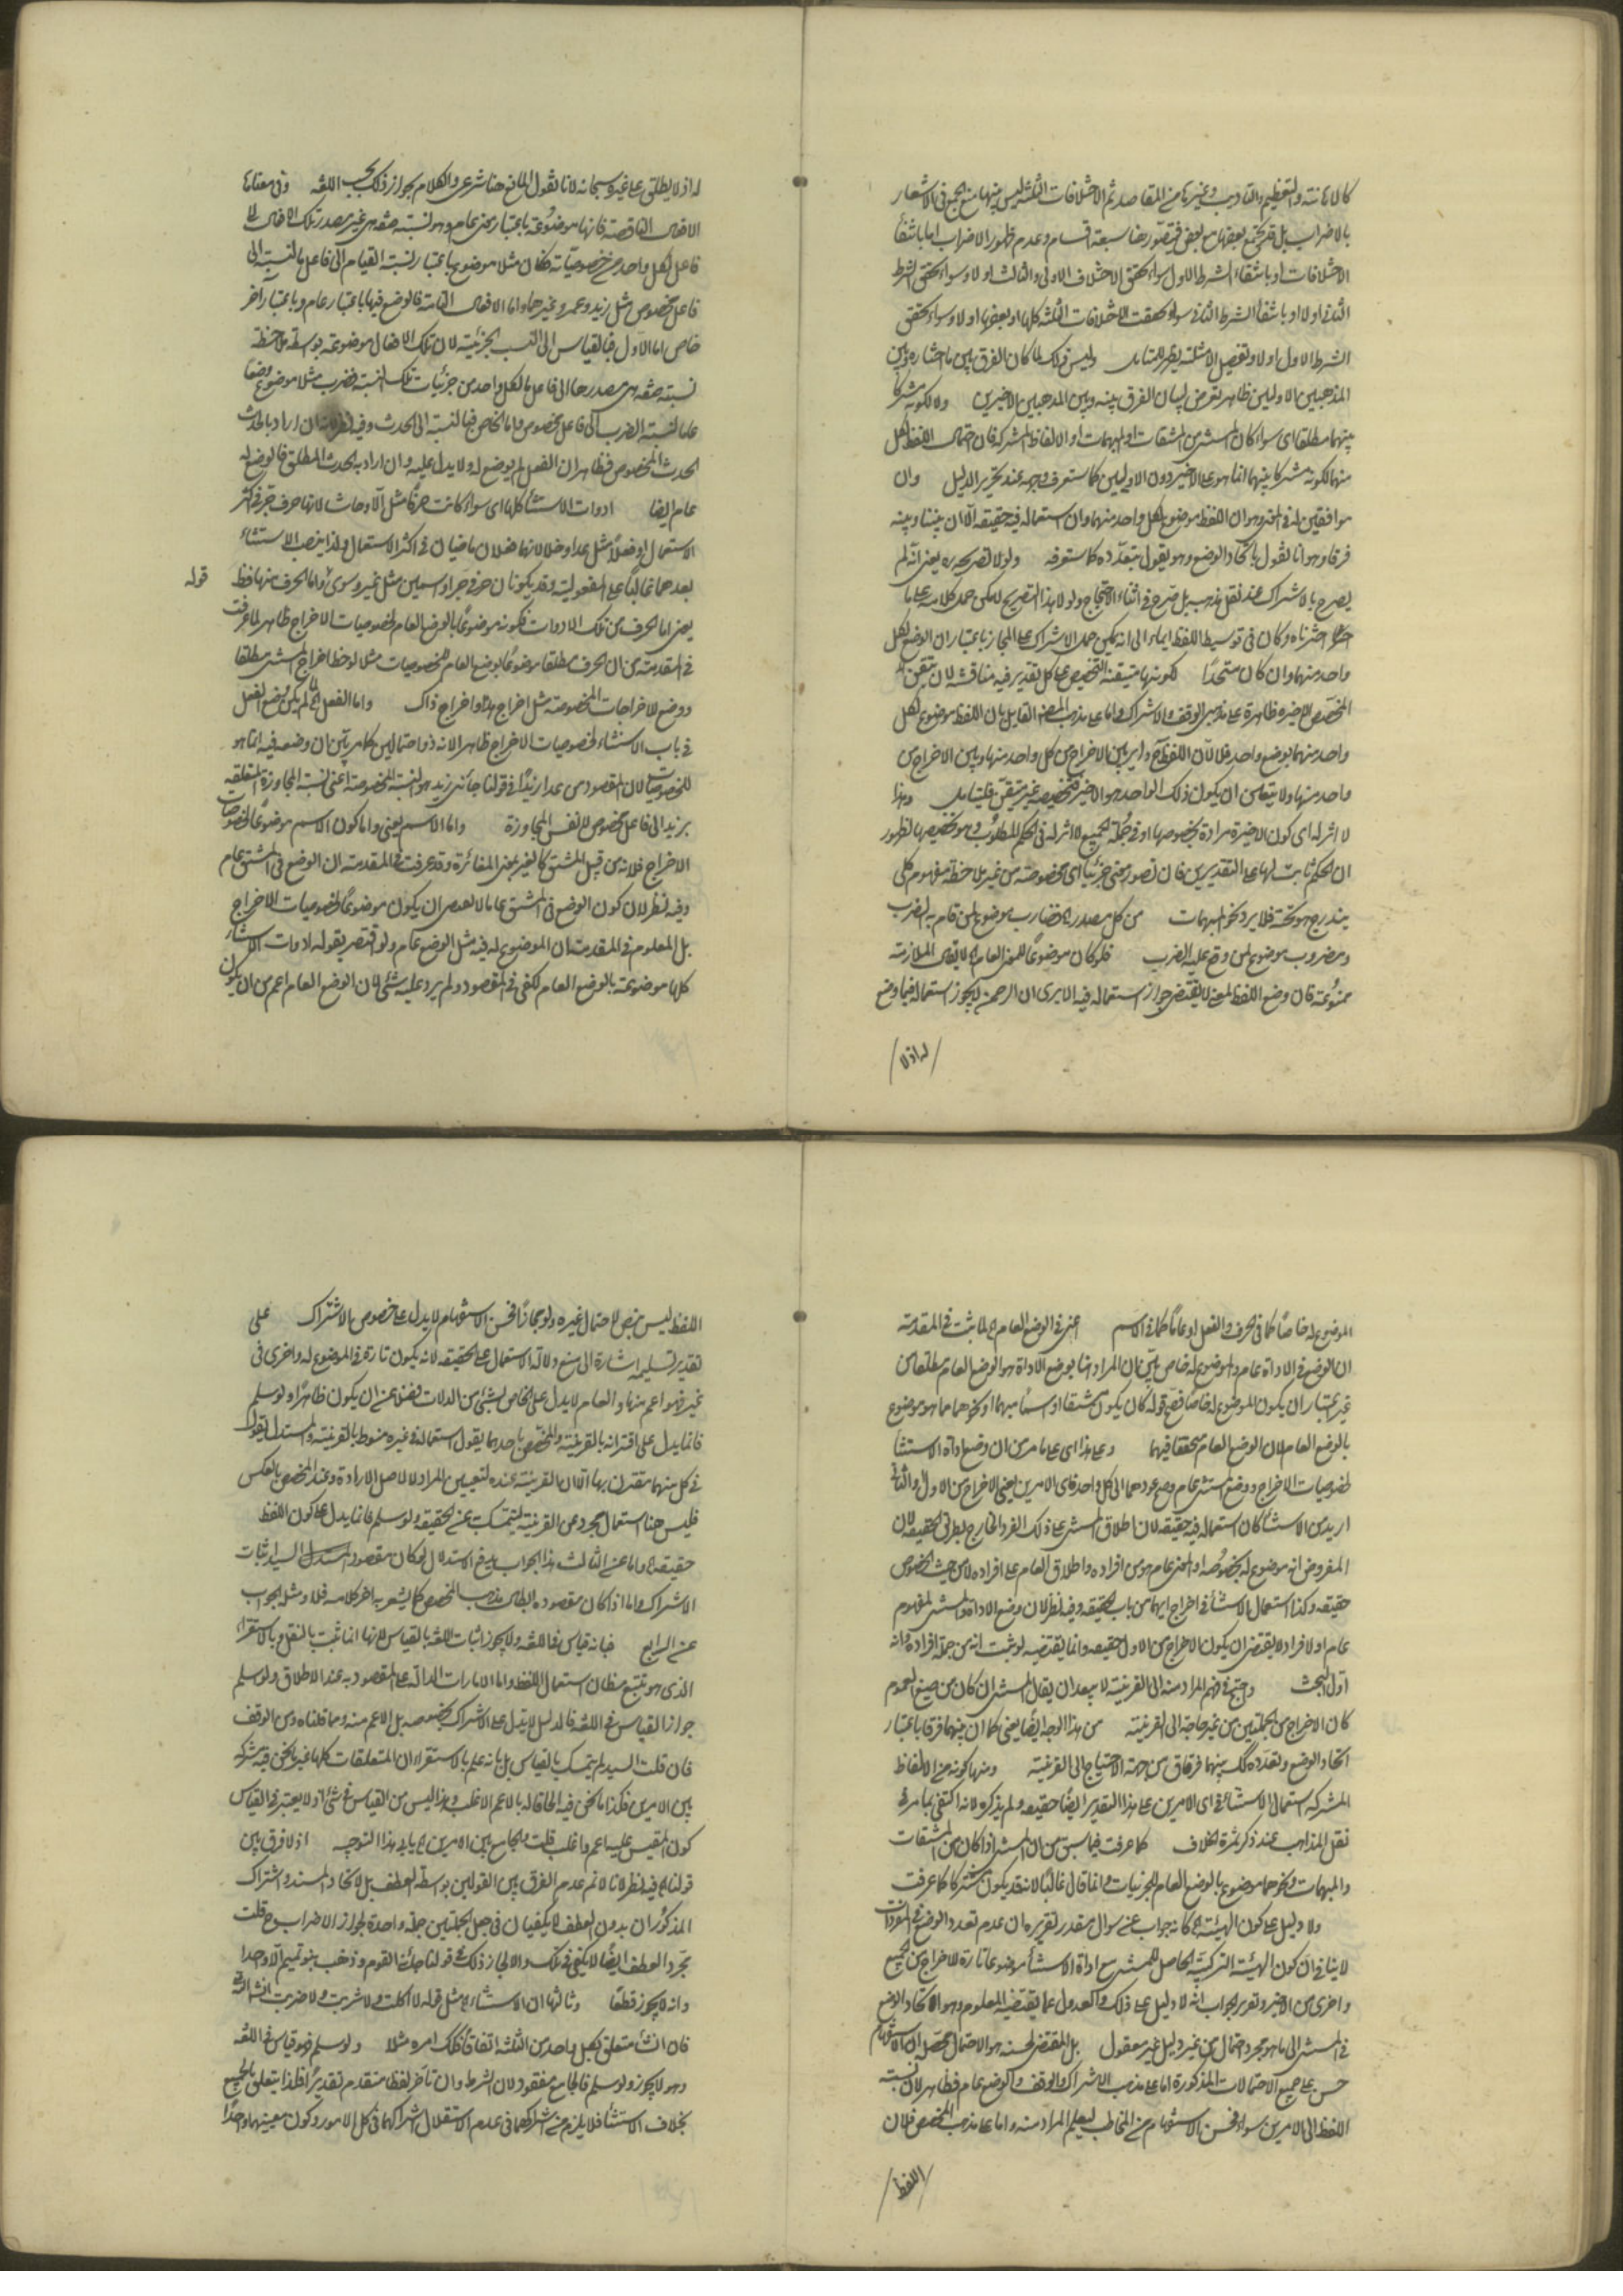 كالاهانة والتعظيم والتاديب وغيرها من المقاصد ثم الاختلافات الثلثة ليس بينها منع الجمع في الاشعار
بالاضراب بل قد يجتمع بعضها مع بعض فيتصور هنا سبعة اقسام وعدم ظهور الاضراب اما بانتفاء
الاختلافات او بانتفاء الشرط الاول سواء تحقق الاختلاف الاول والثالث او لا وسواء تحقق الشرط
الثاني او لا او بانتفاء الشرط الثاني سواء تحققت الاختلافات الثلثة كلها او بعضها او لا وسواء تحقق
الشرط الاول او لا وتفصيل الامثلة يظهر للمتامل وليس ذلك لما كان الفرق بين ما اختاره وبين
المذهبين الاولين ظاهر تعرض لبيان الفرق بينه وبين المذهبين الاخيرين ولا لكونه مشتركا
بينهما مطلقا اى سواء كان المستثنى من المشتقات او المبهمات او الالفاظ المشتركة فان احتمال اللفظ لكل
منهما لكونه مشتركا بينهما انما هو على الاخير دون الاولين كما ستعرف وجهه عند تحرير الدليل وان
موافقين له في المعنى وهو ان اللفظ موضوع لكل واحد منهما وان استعماله فيه حقيقة الا ان بيننا وبينه
فرقا وهو انا نقول باتحاد الوضع وهو يقول بتعدده كما ستعرفه ولولا تصريحه به يعنى انه لم
يصرح بالاشتراك عند نقل مذهبه بل صرح في اثناء الاحتجاج ولولا هذا التصريح لامكن حمل كلامه على ما
اخترناه وكان في توسيط اللفظ ايماء الى انه يمكن حمل الاشتراك على المجاز باعتبار ان الوضع لكل
واحد منهما وان كان متحدا لكونها متيقنة التخصيص على كل تقدير فيه مناقشة لان تيقن
المخصص للاخيرة ظاهرة على مذهبي الوقف والاشتراك واما على مذهب المصنف القايل بان اللفظ موضوع لكل
واحد منهما بوضع واحد فلا لان اللفظ ح داير بين الاخراج من كل واحد منها وبين الاخراج من
واحد منها ولا يتعين ان يكون ذلك الواحد هو الاخير فتخصيصه غير متيقن فليتامل وهذا
لا اثر له اى كون الاخيرة مرادة بخصوصها او في جملة الجميع لا اثر له في الحكم المطلوب وهو تخصيصها لظهور
ان الحكم ثابت لها على التقديرين فان تصور معنى جزئيا اى مخصوصة من غير ملاحظة مفهوم كلى
يندرج هو تحته فلا يرد نحو المبهمات من كل مصدر الخ فضارب موضوع لمن قام به الضرب
ومضروب موضوع لمن وقع عليه الضرب فلو كان موضوعا للمعنى العام الخ لا يقال الملازمة
ممنوعة فان وضع اللفظ لمعنى لا يقتضى جواز استعماله فيه الا يرى ان الرحمن لا يجوز استعماله فيما وضع
له اذ لا
له اذ لا يطلق على غيره سبحانه لانا نقول المانع هنا شرعى والكلام بجواز ذلك بحسب اللغة وفي معناها
الافعال الناقصة فانها موضوعة باعتبار معنى عام وهو نسبة حقيقة هى غير مصدر تلك الافعال الى
فاعل لكل واحد من خصوصياته فكان مثلا موضوع باعتبار نسبة القيام الى فاعل بالنسبة الى
فاعل مخصوص مثل زيد وعمرو وغيرهما واما الافعال التامة فالوضع فيها باعتبار عام وباعتبار اخر
خاص اما الاول فبالقياس الى النسب الجزئية لان تلك الافعال موضوعة بواسطة ملاحظة
نسبة حقيقة هى مصدرها الى فاعل ما لكل واحد من جزئيات تلك النسبة فضرب مثلا موضوع وضعا
عاما لنسبة الضرب الى فاعل مخصوص واما الخاص فبالنسبة الى الحدث وفيه نظر لانه ان اراد بالحدث
الحدث المخصوص فظاهر ان الفعل لم يوضع له ولا يدل عليه وان اراد به الحدث المطلق فالوضع له
عام ايضا ادوات الاستثناء كلها اى سواء كانت حرفا مثل الا وحاشا لانها حرف جر في اكثر
الاستعمال او فعلا مثل عدا وخلا لانهما فعلان ماضيان في اكثر الاستعمال ولذا ينصب الاستثناء
بعدهما غالبا على المفعولية وقد يكونان حرفي جر او اسمين مثل غير وسوى واما الحرف منها فظ
قوله
يعنى اما الحرف من تلك الادوات فكونه موضوعا بالوضع العام لخصوصيات الاخراج ظاهر لما عرفت
في المقدمة من ان الحرف مطلقا موضوع بالوضع العام للخصوصيات مثلا لوحظ اخراج المستثنى مطلقا
ووضع للاخراجات المخصوصة مثل اخراج هذا واخراج ذاك واما الفعل الخ لم يكن وضع الفعل
في باب الاستثناء لخصوصيات الاخراج ظاهرا لانه ذو احتمالين كما مر بين ان وضعه فيه انما هو
للخصوصيات لان المقصود من عدا زيدا في قولنا جائنى زيد هو النسبة المخصوصة اعنى نسبة المجاوزة المتعلقة
بزيد الى فاعل مخصوص لا نفس المجاوزة واما الاسم يعنى واما كون الاسم موضوعا لخصوصيات
الاخراج فلانه من قبيل المشتق كالغير بمعنى المغائرة وقد عرفت في المقدمة ان الوضع في المشتق عام
وفيه نظر لان كون الوضع في المشتق عاما لا يقتضى ان يكون موضوعا لخصوصيات الاخراج
بل المعلوم في المقدمة ان الموضوع له فيه مثل الوضع عام ولو اقتصر بقوله ادوات الاستثناء
كلها موضوعة بالوضع العام لكفى في المقصود ولم يرد عليه شئ لان الوضع العام اعم من ان يكون
الموضوع له خاصا كما في الحرف والفعل او عاما كما في الاسم اعنى في الوضع العام الخ لما ثبت في المقدمة
ان الوضع في الاداة عام والموضوع له خاص بين ان المراد هنا بوضع الاداة هو الوضع العام مطلقا من
غير اعتبار ان يكون الموضوع له خاصا فصح قوله كان يكون مشتقا او اسما مبهما او نحوهما مما هو موضوع
بالوضع العام لان الوضع العام متحقق فيهما وعلى هذا اى على ما مر من ان وضع اداة الاستثناء
لخصوصيات الاخراج ووضع المستثنى عام وصح عودهما الى كل واحد فاى الامرين يعنى الاخراج من الاول والثانى
اريد من الاستثناء كان استعماله فيه حقيقة لان اطلاق المستثنى على ذلك الفرد الخارج بطريق الحقيقة لان
المفروض انه موضوع له بخصوصه او لمعنى عام هو من افراده واطلاق العام على افراده لا من حيث الخصوص
حقيقة وكذا استعمال الاستثناء في اخراج ايهما من باب الحقيقة وفيه نظر لان وضع الاداة والمستثنى لمفهوم
عام او لافراده لا يقتضى ان يكون الاخراج من الاول حقيقة وانما يقتضيه لو ثبت انه من جملة افراده وانه
اول البحث واحتج في فهم المراد منه الى القرينة لا يبعد ان يقال المستثنى ان كان من صيغ العموم
كان الاخراج من الجملتين من غير حاجة الى القرينة من هذا الوجه ايضا يعنى كما ان بينهما فرقا باعتبار
اتحاد الوضع وتعدده كك بينهما فرقان من جهة الاحتياج الى القرينة ومنها كونه من الالفاظ
المشتركة استعمال الاستثناء في اى الامرين على هذا التقدير ايضا حقيقة ولم يذكره لانه اكتفى بما مر في
نقل المذاهب عند ذكر ثمرة الخلاف كما عرفت فيما سبق من ان المستثنى اذا كان من المشتقات
والمبهمات ونحوهما موضوع بالوضع العام للجزئيات وانما قال غالبا لانه قد يكون مشتركا كما عرفت
ولا دليل على كون الهيئة الخ كانه جواب عن سوال مقدر تقريره ان عدم تعدد الوضع في المفردات
لا ينافي كون الهيئة التركيبية الحاصل للمستثنى مع اداة الاستثناء موضوعا تارة للاخراج من الجميع
واخرى من الاخير وتقرير الجواب انه لا دليل على ذلك والعدول عما يقتضيه المعلوم وهو الاتحاد الوضع
في المستثنى الى ما هو مجرد احتمال من غير دليل غير معقول بل المقتضى لحسنه هو الاحتمال محصله ان الاستفهام
حسن على جميع الاحتمالات المذكورة اما على مذهب الاشتراك والوقف والوضع عام فظاهر لان نسبة
اللفظ الى الامرين سواء فحسن الاستفهام من المخاطب ليعلم المراد منه واما على مذهب المخصص فلان
اللفظ
اللفظ ليس بنص لاحتمال غيره ولو مجازا فحسن الاستفهام لا يدل على خصوص الاشتراك على
تقدير تسليمه اشارة الى منع دلالة الاستعمال على الحقيقة لانه يكون تارة في الموضوع له واخرى في
غيره فهو اعم منها والعام لا يدل على الخاص بشئ من الدلالات فضلا عن ان يكون ظاهرا ولو سلم
فانما يدل على اقترانه بالقرينة والمخصص باحدهما يقول استعماله في غيره منوط بالقرينة والمستدل يقول
في كل منهما مقترن بها الا ان القرينة عنده لتعيين المراد لا لاصل الارادة وعند المخصص بالعكس
فليس هنا استعمال مجرد عن القرينة ليتمسك عن الحقيقة ولو سلم فانما يدل على كون اللفظ
حقيقة واما عن الثالث هذا الجواب يدفع الاستدلال لو كان مقصود المستدل السيد اثبات
الاشتراك واما اذا كان مقصوده ابطال مذهب المخصص كما يشعر به اخر كلامه فلا ومثل الجواب
عن الرابع فبانه قياس في اللغة ولا يجوز اثبات اللغة بالقياس لانها انما تثبت بالنقل وبالاستقراء
الذى هو تتبع مظان استعمال اللفظ واما الامارات الدالة على المقصود به عند الاطلاق ولو سلم
جواز القياس في اللغة فالدليل لا يدل على الاشتراك بخصوصه بل الاعم منه ومما قلناه ومن الوقف
فان قلت السيد لم يتمسك بالقياس بل بانه علم بالاستقراء ان المتعلقات كلها غير ما نحن فيه مشتركة
بين الامرين فكذا ما نحن فيه الحاقا له بالاعم الاغلب وهذا ليس من القياس في شئ اذ لا يعتبر في القياس
كون المقيس عليه اعم واغلب قلت والجامع بين الامرين الخ يابى هذا التوجيه اذ لا فرق بين
قولنا الخ فيه نظر لانا لا نم عدم الفرق بين القولين بواسطة العطف بل لاتحاد المسند واشتراك
المذكوران بدون العطف لا يكفيان في جعل الجملتين جملة واحدة لجواز الاضراب ح قلت
مجرد العطف ايضا لا يكفى في ذلك والا لجاز ذلك في قولنا جائنا القوم وذهب بنو تميم الا واحدا
وانه لا يجوز قطعا وثالثها ان الاستثناء الخ مثل قوله لا اكلت ولا شربت ولا ضربت انشاء الله
فان الشاء متعلق بكل واحد من الثلثة اتفاقا فكذلك امره مثلا ولو سلم فهو قياس في اللغة
وهو لا يجوز ولو سلم فالجامع مفقود لان الشرط وان تاخر لفظا متقدم تقديرا فلذا يتعلق بالجميع
بخلاف الاستثناء فلا يلزم من اشتراكهما في عدم الاستقلال اشتراكهما في كل الامور وكون معنييهما واحدا